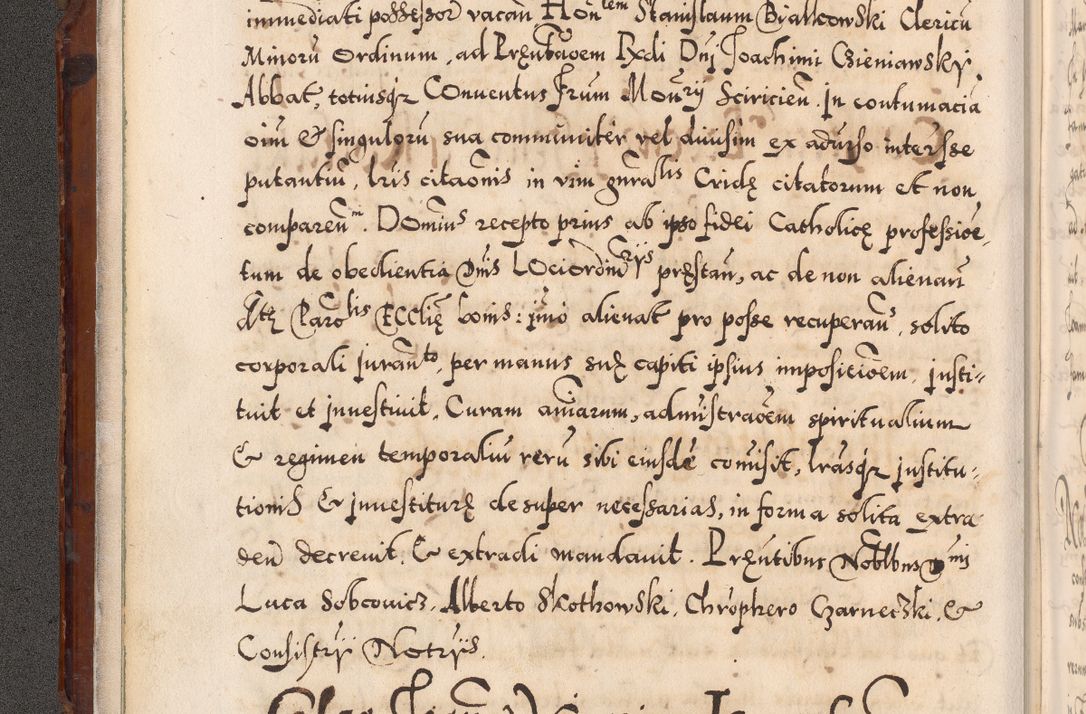 immediati possessorē vacañ Honᵗᵉᵐ Stanislaum Byalkowski Clericū
Minorū Ordinum, ad Præntaõem Rxdi Dnj Joachimi Czieniawsky,
Abbat, totiusqȝ Conuentus Frum Monrÿ Sciricieñ. in contumaciã
oim̄ & singulorū sua communiter vel diuisim ex aduerso interesse
putantiū, lris citaõnis in vim gnralis Cridę citatorum et non
compareñᵐ. Dominus recepto prius ab ipso fidei Catholicę professioē,
tum de obedientia Dnis Lociordinrÿs prestañ, ac de non alienañ
dctę Parolis Ecclię bonis: imo alienat pro posse recuperañ, solito
corporali juranto, per manus suę capiti ipsius imposicioēm, justi-
tuit et jnuestiuit, Curam aniarum, admistraoēm spiritualium
& regimen temporaliū rerū sibi eiusdē comisit, lrasqȝ justitu-
tionis & jnuestiturę desuper necessarias, in forma solita extra
deñ decreuit, & extradi mandauit. Præntibus Nobilbus Dnis
Luca Sobcovics, Alberto Skothowski, Chrophero Czarnecski, &
Consistrÿ Notrÿs.